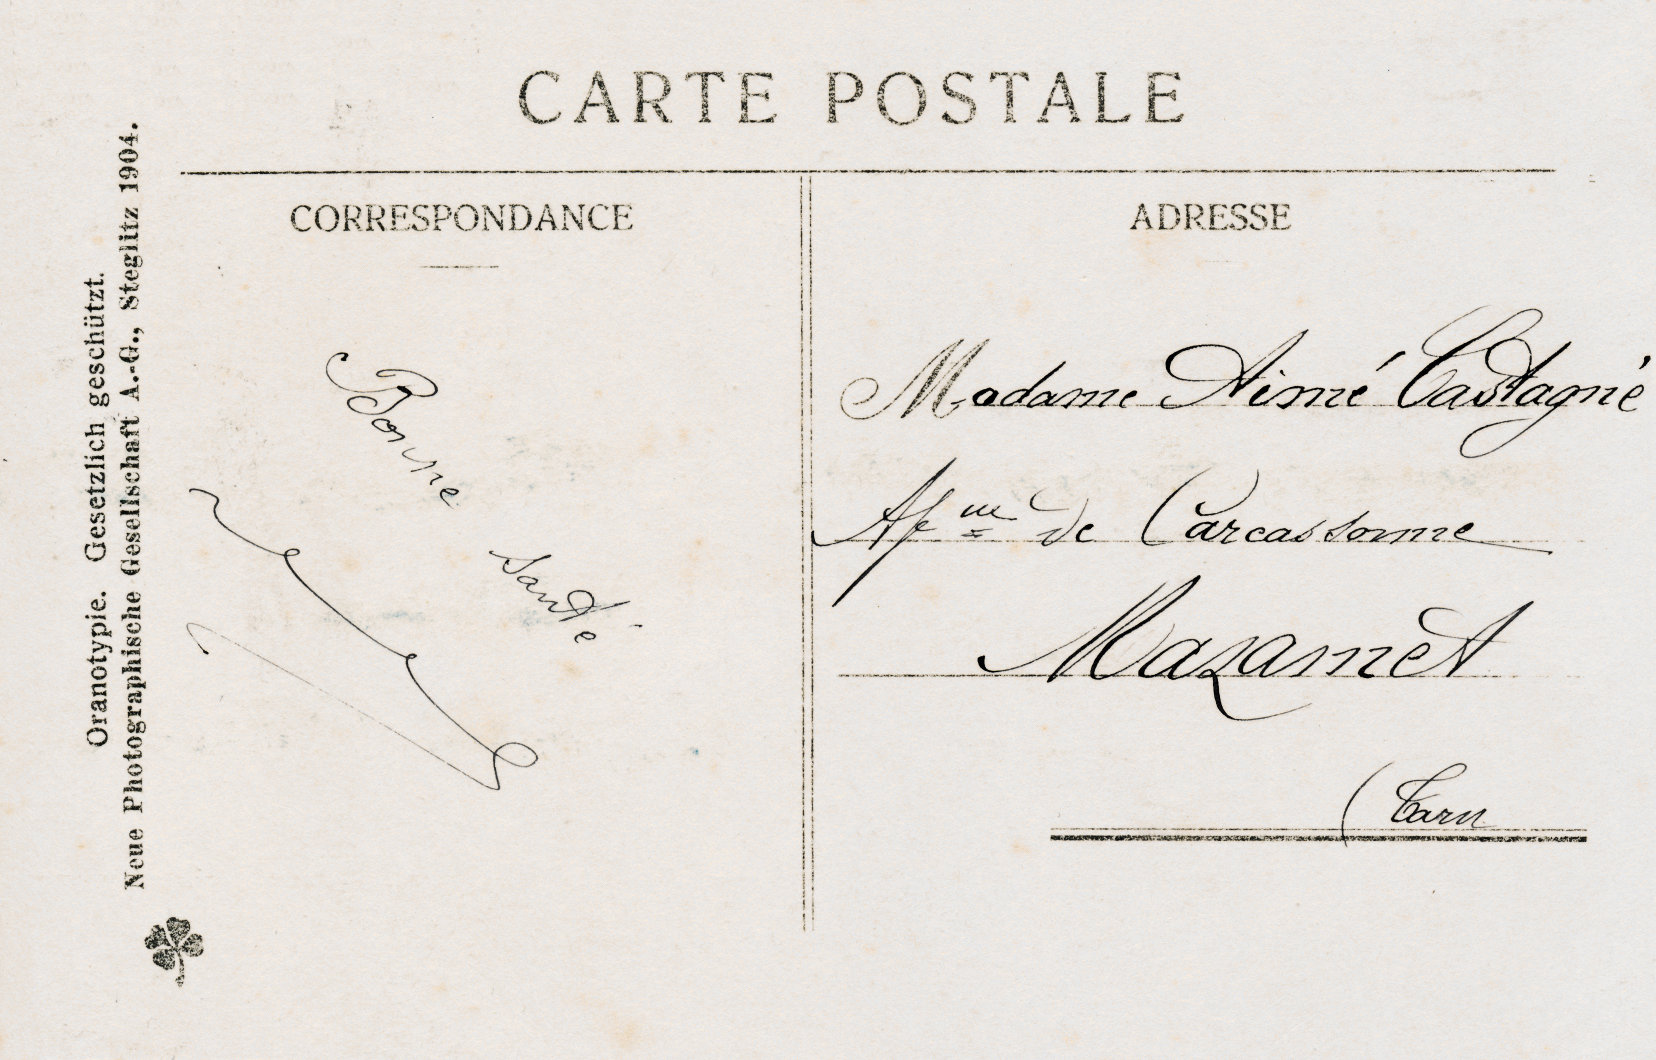 CARTE POSTALE
CORRESPONDANCE
ADRESSE
Oranotypie. Gesetzlich geschützt.
Neue Photographische Gesellschaft A.-G., Steglitz 1904.
Bonne
santé
Madame Aimé Castagné
de Carcassonne
Mazamet
(Tarn